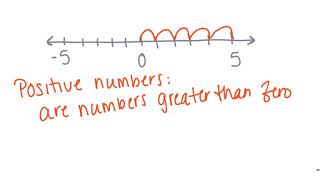 -5 0 5
Positive numbers:
are numbers greater than zero